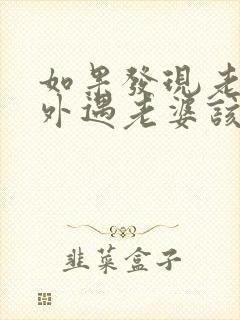 如果發現老
外遇老婆該
韭菜盒子